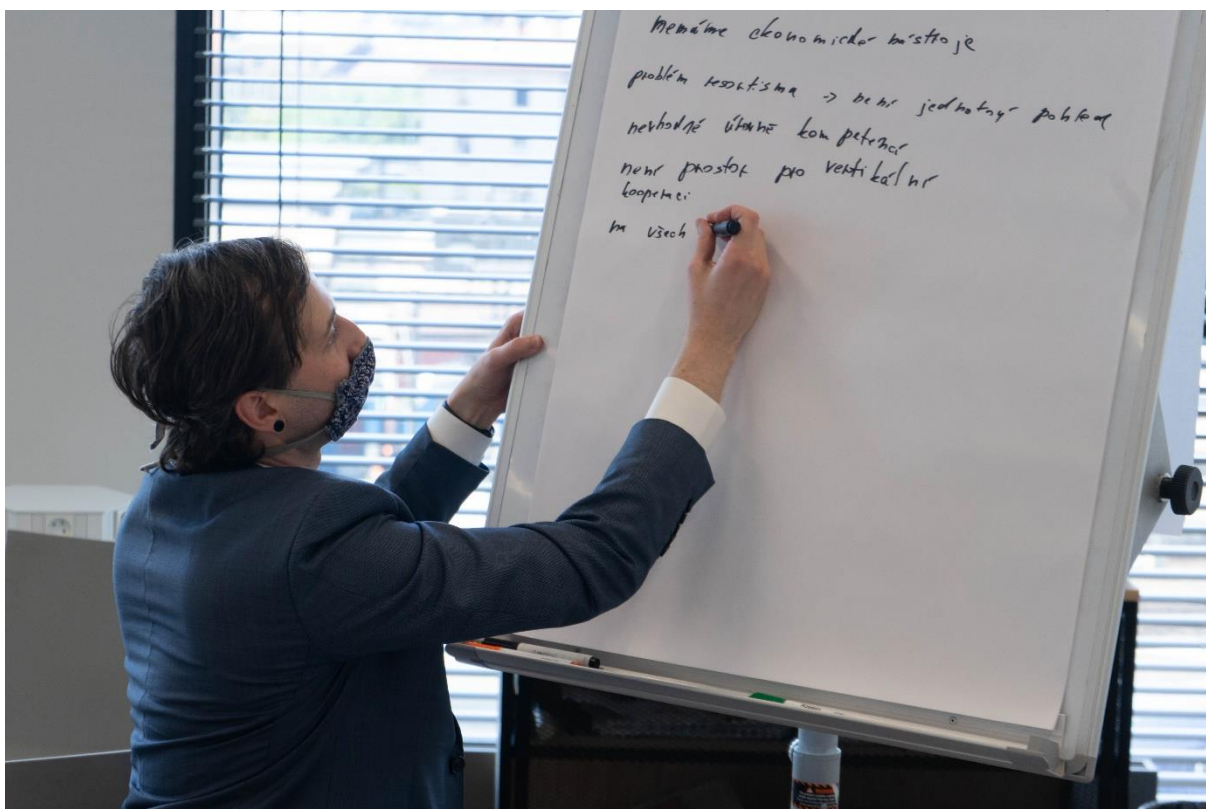 nemáme ekonomické nástroje
problém resortisma -> není jednotný pohled
nevhodné kompetencí
není prostor pro vertikální
kooperaci
na všech